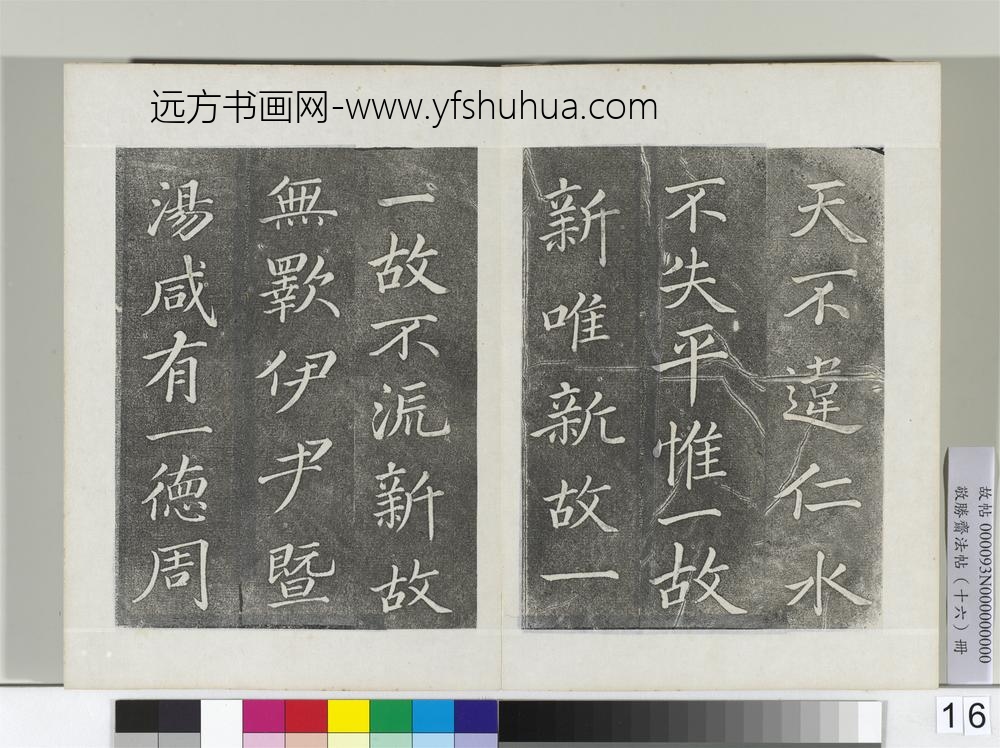 远方书画网-www.yfshuhua.com
天不違仁水
不失平惟一故
新唯新故一
一故不流新故
無歝伊尹暨
湯咸有一徳周
故帖 000093N000000000
敬勝齋法帖（十六）冊
16